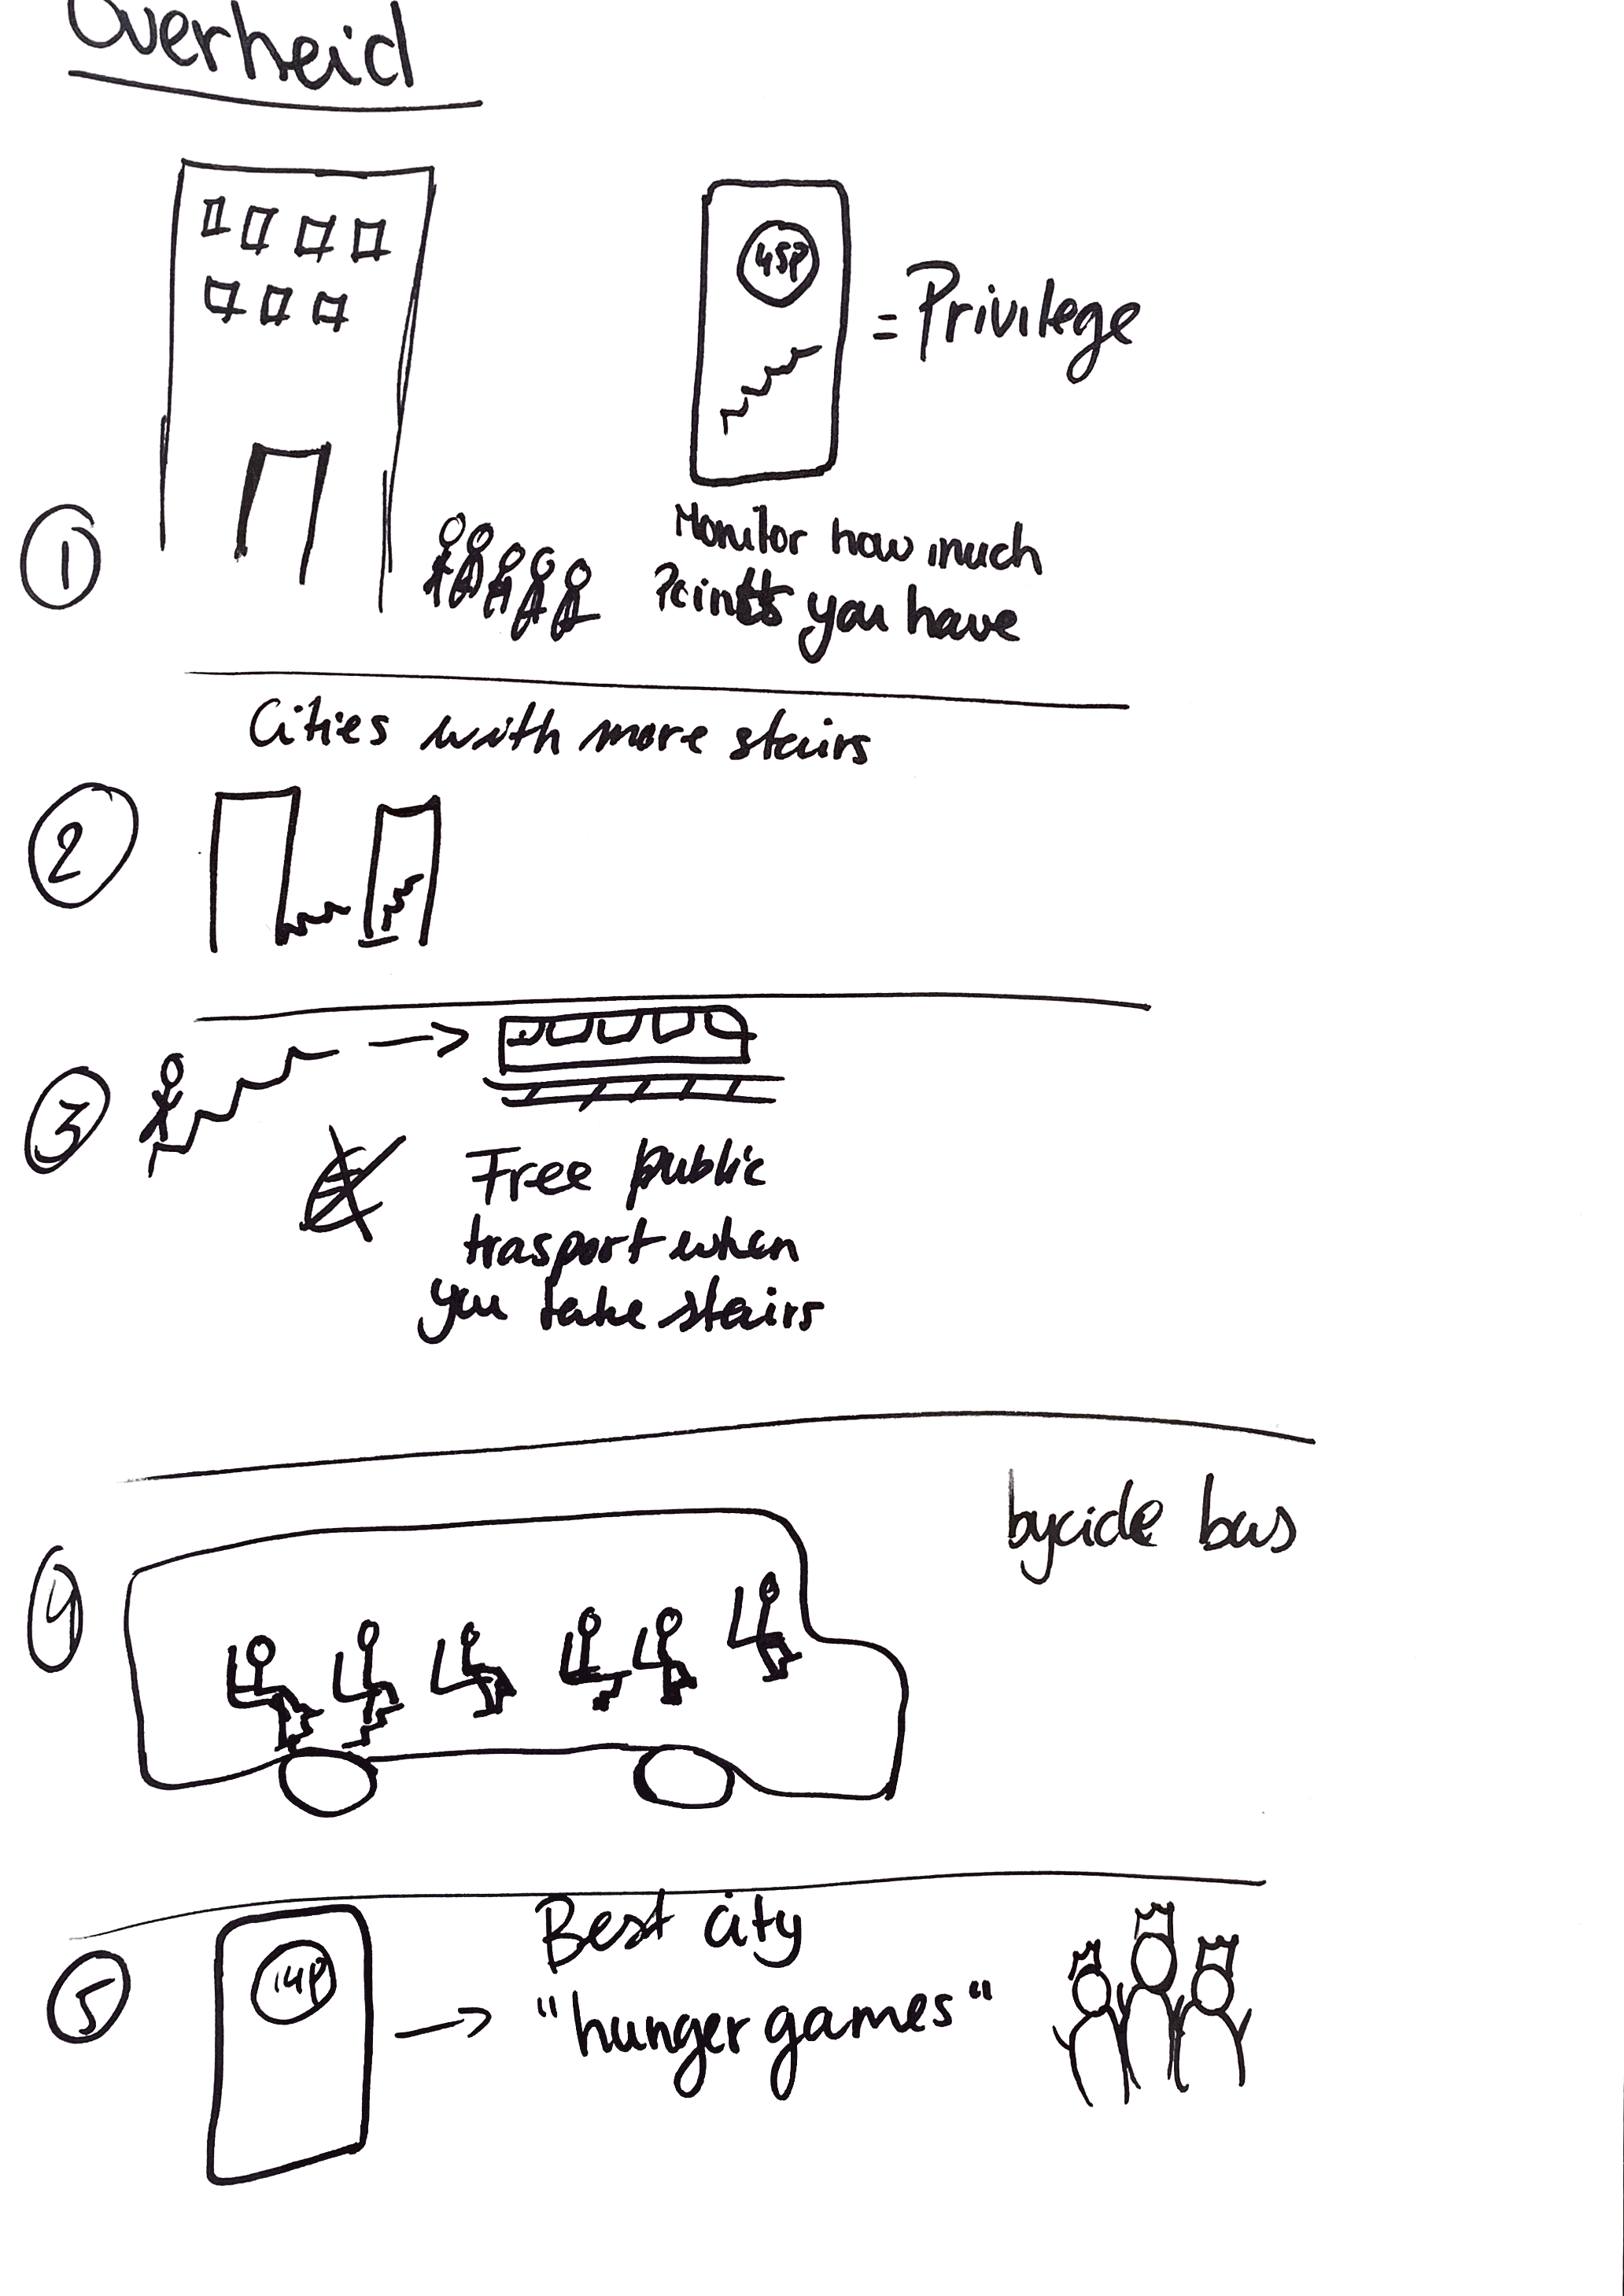 Overheid
45P
= Privilege
1
Monitor how much
Points you have
Cities with more stairs
2
3
Free public
trasport when
you take stairs
4
bycicle bus
5
14P
Best city
"hunger games"